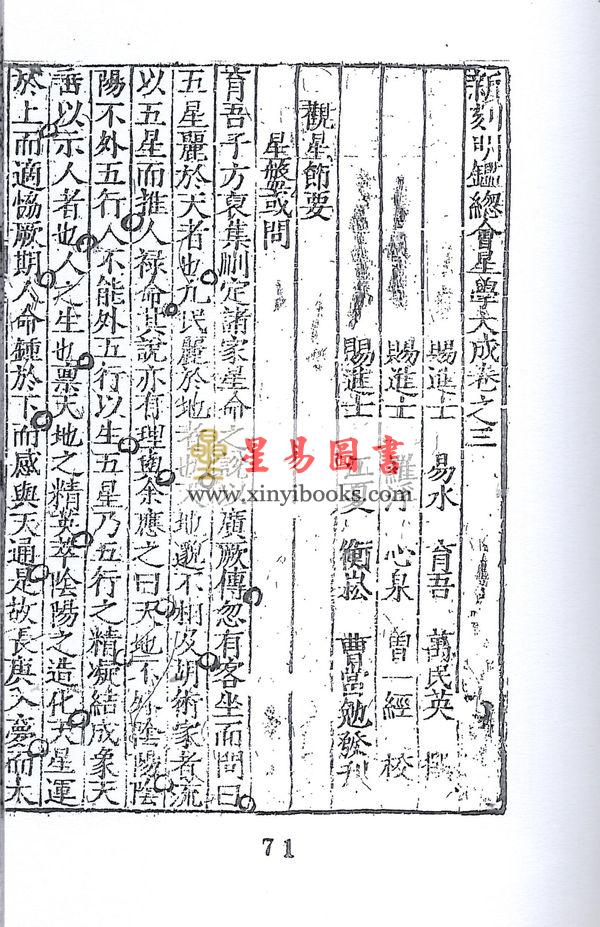 新刻明鑑總會星學大成卷之三
賜進士 易水 育吾 萬民英
賜進士 心泉 曾一經 校
賜進士 衡崧 曹當勉發刊
觀星節要
星盤或問
育吾子方裒集刪定諸家星命之說以廣厥傳忽有客坐而問曰
五星麗於天者也九民麗於地者也天地邈不相及明術家者流
以五星而推人祿命其說亦有理與余應之曰天地不外陰陽陰
陽不外五行人不能外五行以生五星乃五行之精凝結成象天
垂以示人者也人之生也禀天地之精英萃陰陽之造化天星運
於上而適恊厥期人命鍾於下而感與天通是故長與入夢而太
星易圖書
www.xinyibooks.com
71